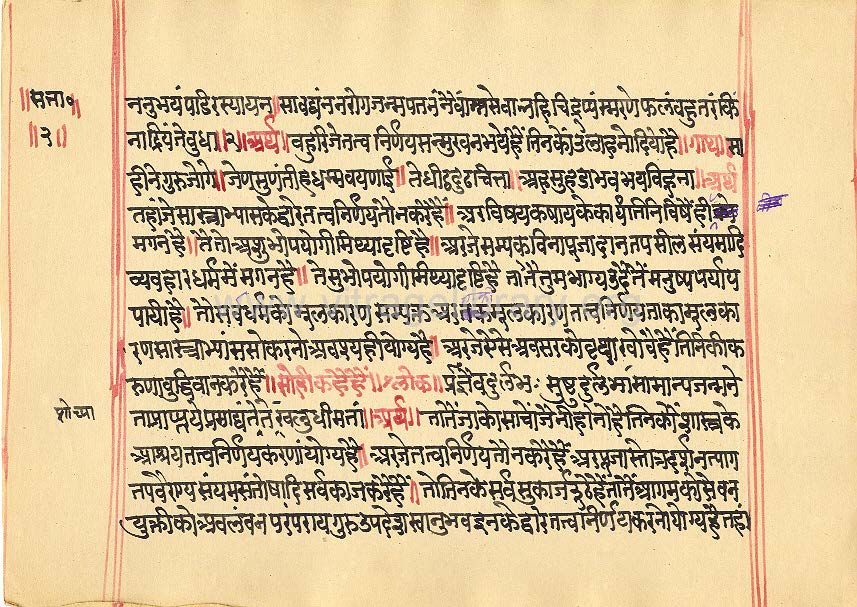 सत्ता०
॥३॥
ननुभयं पाडिरस्यायन॥ सावद्यं न नरोग जन्म पतनं नैवान्तसेवा न्नहि चिद्रूप्यं स्मरणे फलं बहुतरं किं
नाद्रियंते बुधा॥२॥अर्थ॥ बहुरि जे तत्व निर्णय सन्मुख न भये हैं तिनकों उलाहनो दियो है॥गाथा॥सा
हीने गुरु जोगे॥ जे ण सुणंतीह धम्म वयणाई॥ ते धीठ दुठ चित्ता॥ अह सुहडा भव भय विहूना॥अर्थ
तहां जे सास्त्राभ्यासके द्वारे तत्वनिर्णय तौ न करै हैं॥ अर विषय कषायके कार्य तिनि विषें ही
मगन है॥ ते तौ अशुभोपयोगी मिथ्यादृष्टि है॥ अर जे सम्यक विना पूजा दान तप सील संयमादि
व्यवहार धर्म में मगन है॥ ते सुभोपयोगी मिथ्यादृष्टि है तातै तुम भाग्य उदैतें मनुष्य पर्याय
पायी है॥ तो सर्व धर्मको मूल कारण सम्यक्त अर मूल कारण तत्वनिर्णय ताका मूल का
रण सास्त्राभ्यास सो करनो अवश्य ही योग्य है॥ अर जे ऐसे अवसरको वृथा खोवै है तिनिकी क
रुणा बुद्धिवान करे हैं॥सोही कहै हैं॥श्लोक॥ प्रज्ञैव दुर्लभः सुष्टु दुर्लभा सामान्यजन्मने
शोच्या
ताप्राप्नये प्रमाद्यंते ते खलु धीमतां॥अर्थ॥ तातें जाको साचो जैनी होनो है तिनकों शास्त्रके
आश्रय तत्वनिर्णय करणां योग्य है॥ अर जे तत्वनिर्णय तो न करे हैं अर पूजा स्तोत्र दर्शन त्याग
तप वैराग्य संयम संतोषादि सर्व काज करे हैं॥ तो तिनके सर्व सुकार्ज झूठे हैं तातें आगमको सेवन
युक्तीको अवलंबन परंपराय गुरु उपदेश स्वानुभव इनके द्वारे तत्वनिर्णय करनो योग्य है तहां
www.vitragelibrary.org